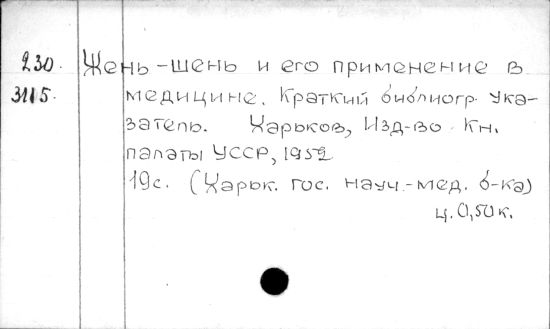 230. Жень-шень и его применение в
3115. медицине. Краткий библиогр. ука-
затель. Харьков, Изд-во Кн.
палаты УССР, 1952
19с. (Харьк. гос. науч.-мед. б-ка)
ц. 0,50 к.